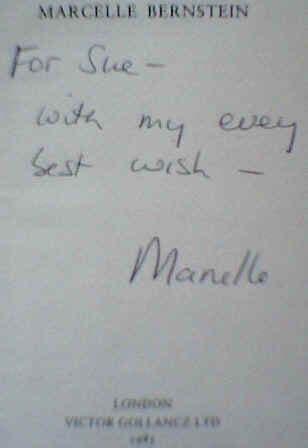 MARCELLE BERNSTEIN
For Sue –
with my every
best wish –
Marcelle
LONDON
VICTOR GOLLANCZ LTD